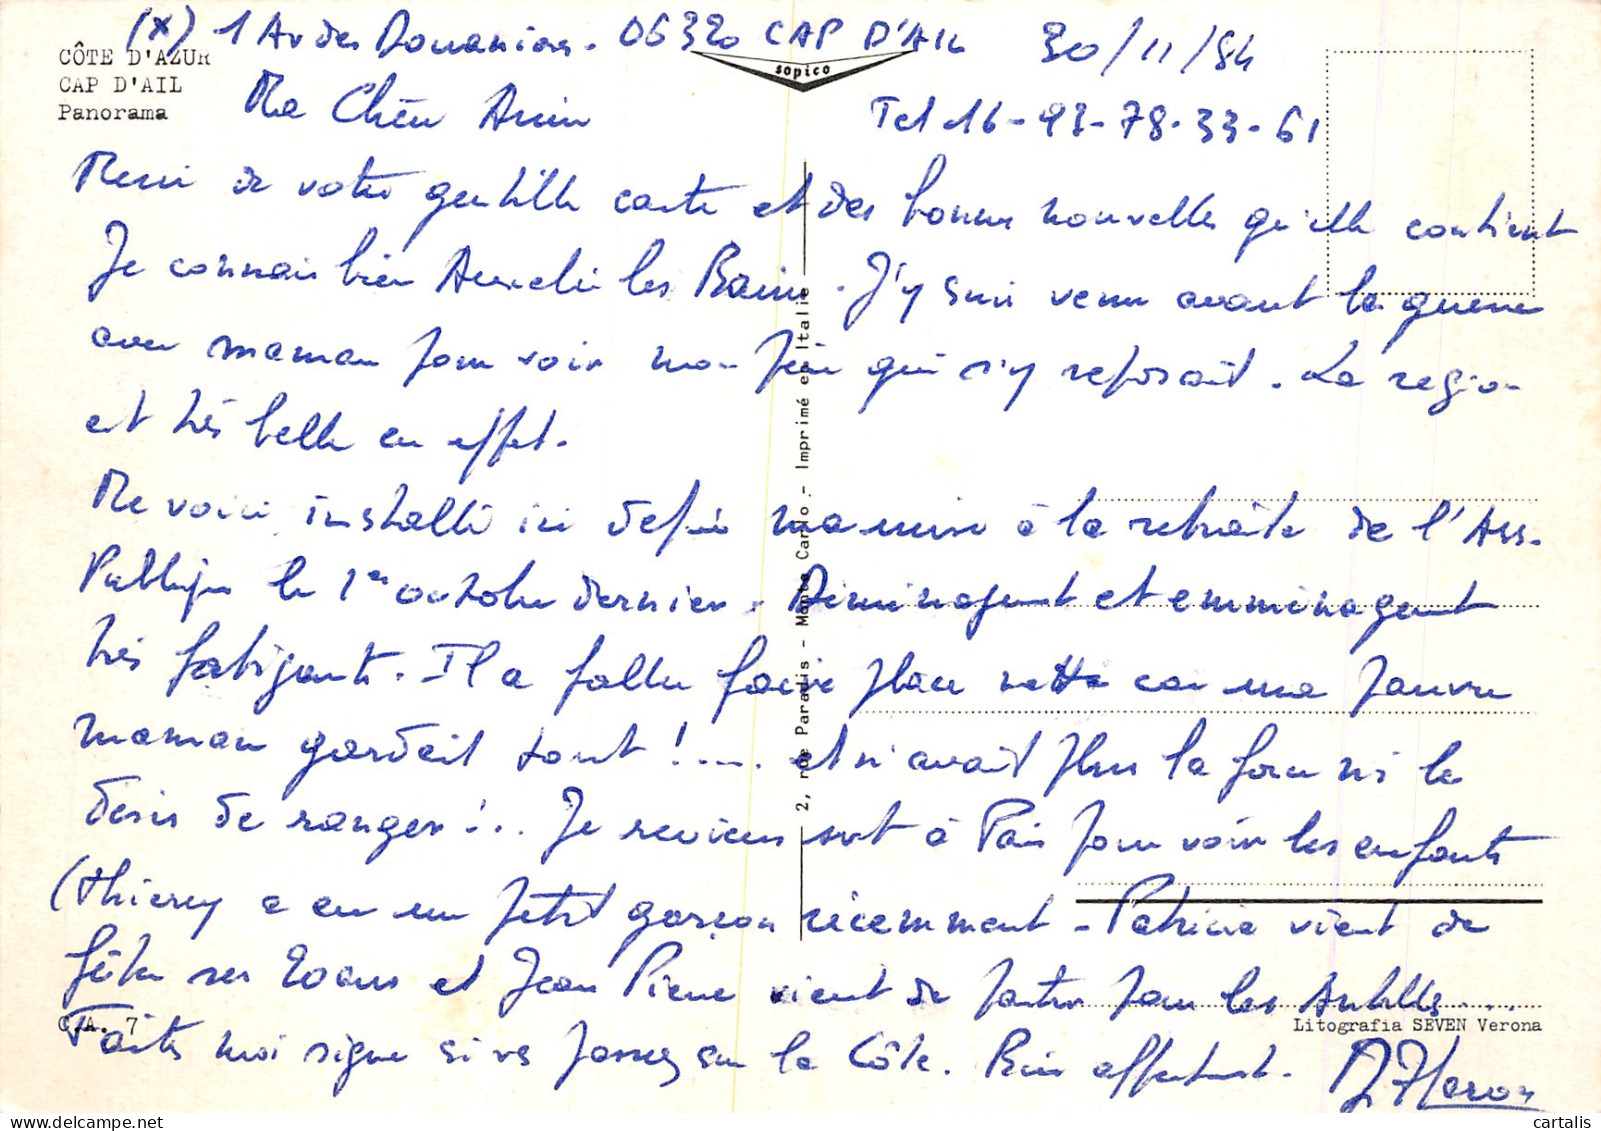 (x) 1 Av des Douaniers. 06320 CAP D'AIL 30/11/84
CÔTE D'AZUR
CAP D'AIL
Panorama
sopico
Ma Chère
Tel 16-93-78-33-61
Merci de votre gentille carte et des bonnes nouvelles qu'elle contient
Je connais bien les Bains. J'y suis venu avant la guerre
avec maman pour voir mon père qui s'y reposait. La région
est très belle en effet.
Me voici installé ici depuis ma mise à la retraite de l'Ass.
Publique le 1er octobre dernier. Déménagement et emménagement
très fatigants. Il a fallu faire place nette car ma pauvre
maman gardait tout !.... et n'avait plus la force ni le
désir de ranger !.. Je reviens svt à Paris pour voir les enfants
(Thierry a eu un petit garçon récemment - Patricia vient de
fêter ses 20 ans et Jean Pierre vient de partir pour les Antilles ...
Faites moi signe si vs passez sur la Côte. Bien affectueust.
2, rue Paradis - Monte Carlo - Imprimé en Italie
C.A. 7
Litografia SEVEN Verona
cartalis